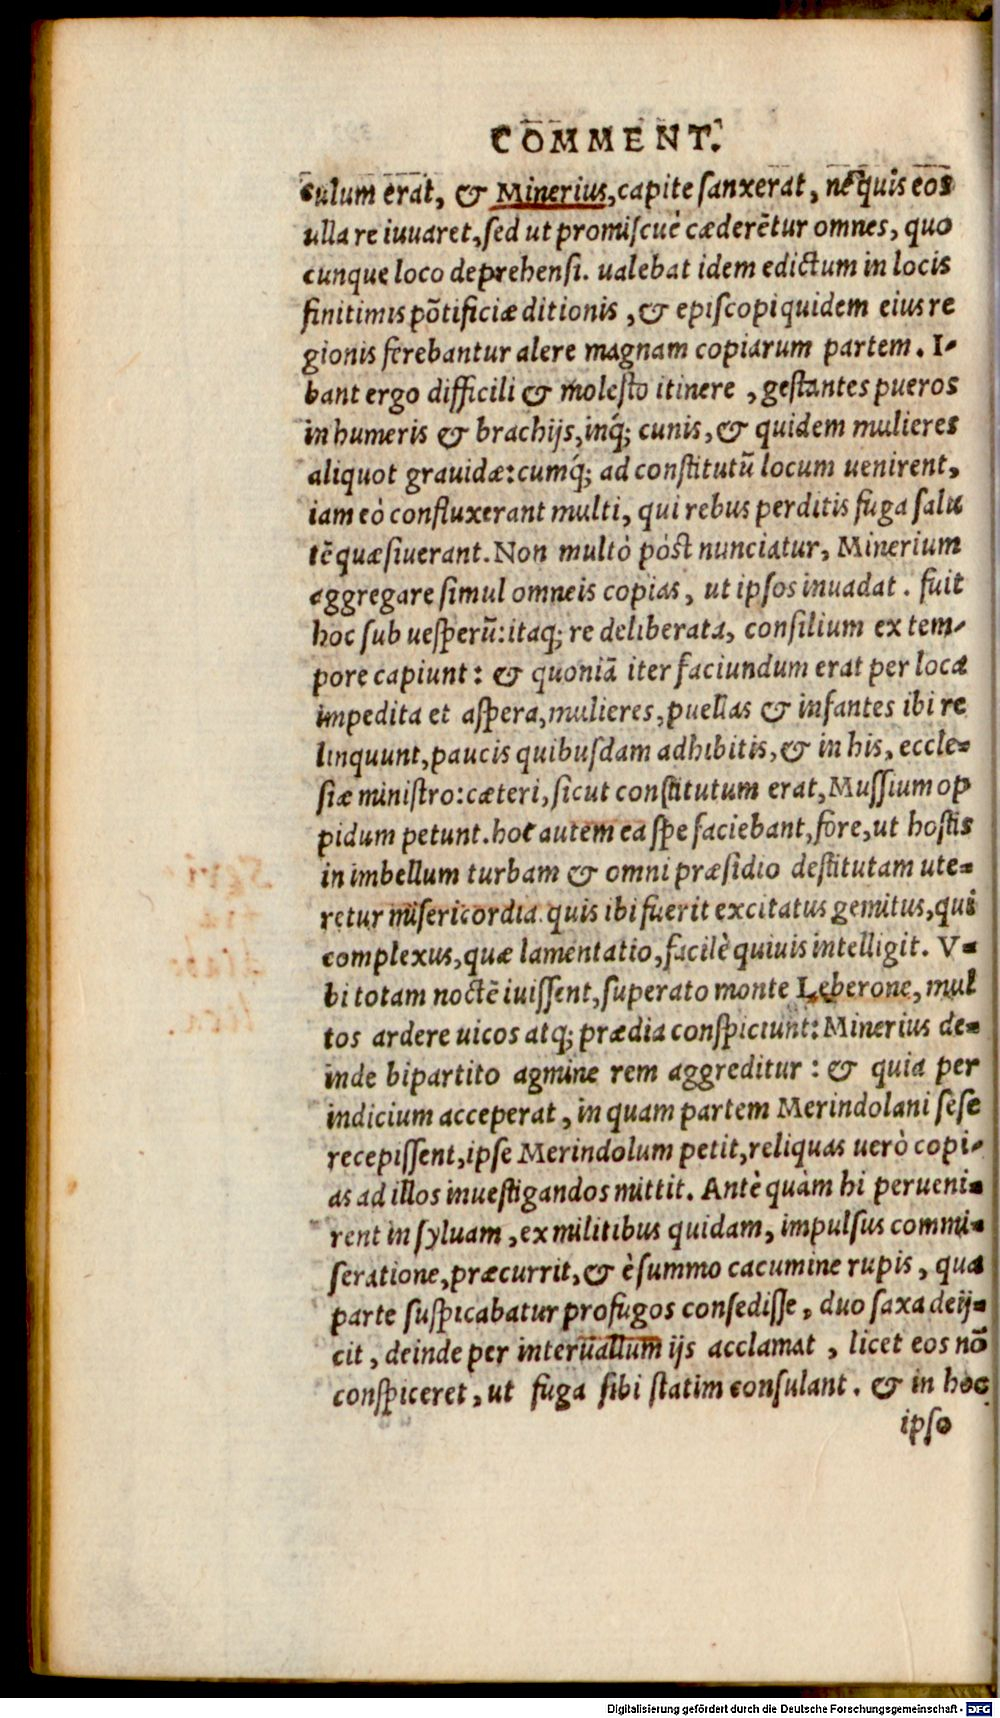 COMMENT.
culum erat, & Minerius, capite sanxerat, ne quis eos
ulla re iuuaret, sed ut promiscuè cæderẽtur omnes, quo
cunque loco deprehensi. ualebat idem edictum in locis
finitimis põtificiæ ditionis, & episcopi quidem eius re
gionis ferebantur alere magnam copiarum partem. I-
bant ergo difficili & molesto itinere, gestantes pueros
in humeris & brachijs, inq́; cunis, & quidem mulieres
aliquot grauidæ: cumq́; ad constitutũ locum uenirent,
iam eò confluxerant multi, qui rebus perditis fuga salu
tẽ quæsiuerant. Non multò pòst nunciatur, Minerium
aggregare simul omneis copias, ut ipsos inuadat. fuit
hoc sub uesperũ: itaq; re deliberata, consilium ex tem-
pore capiunt: & quoniã iter faciundum erat per loca
impedita et aspera, mulieres, puellas & infantes ibi re
linquunt, paucis quibusdam adhibitis, & in his, eccle-
siæ ministro: cæteri, sicut constitutum erat, Mussium op
pidum petunt. hoc autem ea spe faciebant, fore, ut hostis
in imbellum turbam & omni præsidio destitutam ute-
retur misericordia. quis ibi fuerit excitatus gemitus, qui
complexus, quæ lamentatio, facilè quiuis intelligit. V-
bi totam noctẽ iuissent, superato monte Leberone, mul
tos ardere uicos atq; prædia conspiciunt: Minerius de-
inde bipartito agmine rem aggreditur: & quia per
indicium acceperat, in quam partem Merindolani sese
recepissent, ipse Merindolum petit, reliquas uerò copi-
as ad illos inuestigandos mittit. Antè quàm hi perueni-
rent in syluam, ex militibus quidam, impulsus commi-
seratione, præcurrit, & è summo cacumine rupis, qua
parte suspicabatur profugos consedisse, duo saxa deij-
cit, deinde per interuallum ijs acclamat, licet eos nõ
conspiceret, ut fuga sibi statim consulant. & in hoc
ipso
Digitalisierung gefördert durch die Deutsche Forschungsgemeinschaft - DFG